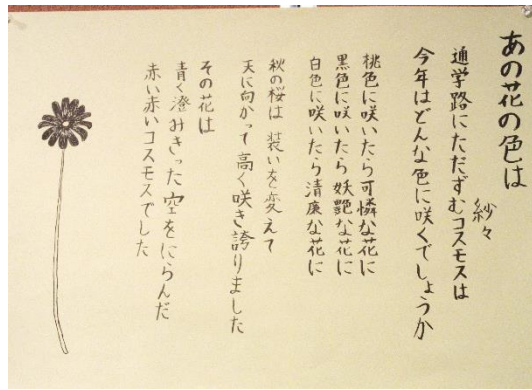 あの花の色は
紗々
通学路にただずむコスモスは
今年はどんな色に咲くでしょうか
桃色に咲いたら可憐な花に
黒色に咲いたら妖艶な花に
白色に咲いたら清廉な花に
秋の桜は装いを変えて
天に向かって高く咲き誇りました
その花は
青く澄みきった空をにらんだ
赤い赤いコスモスでした